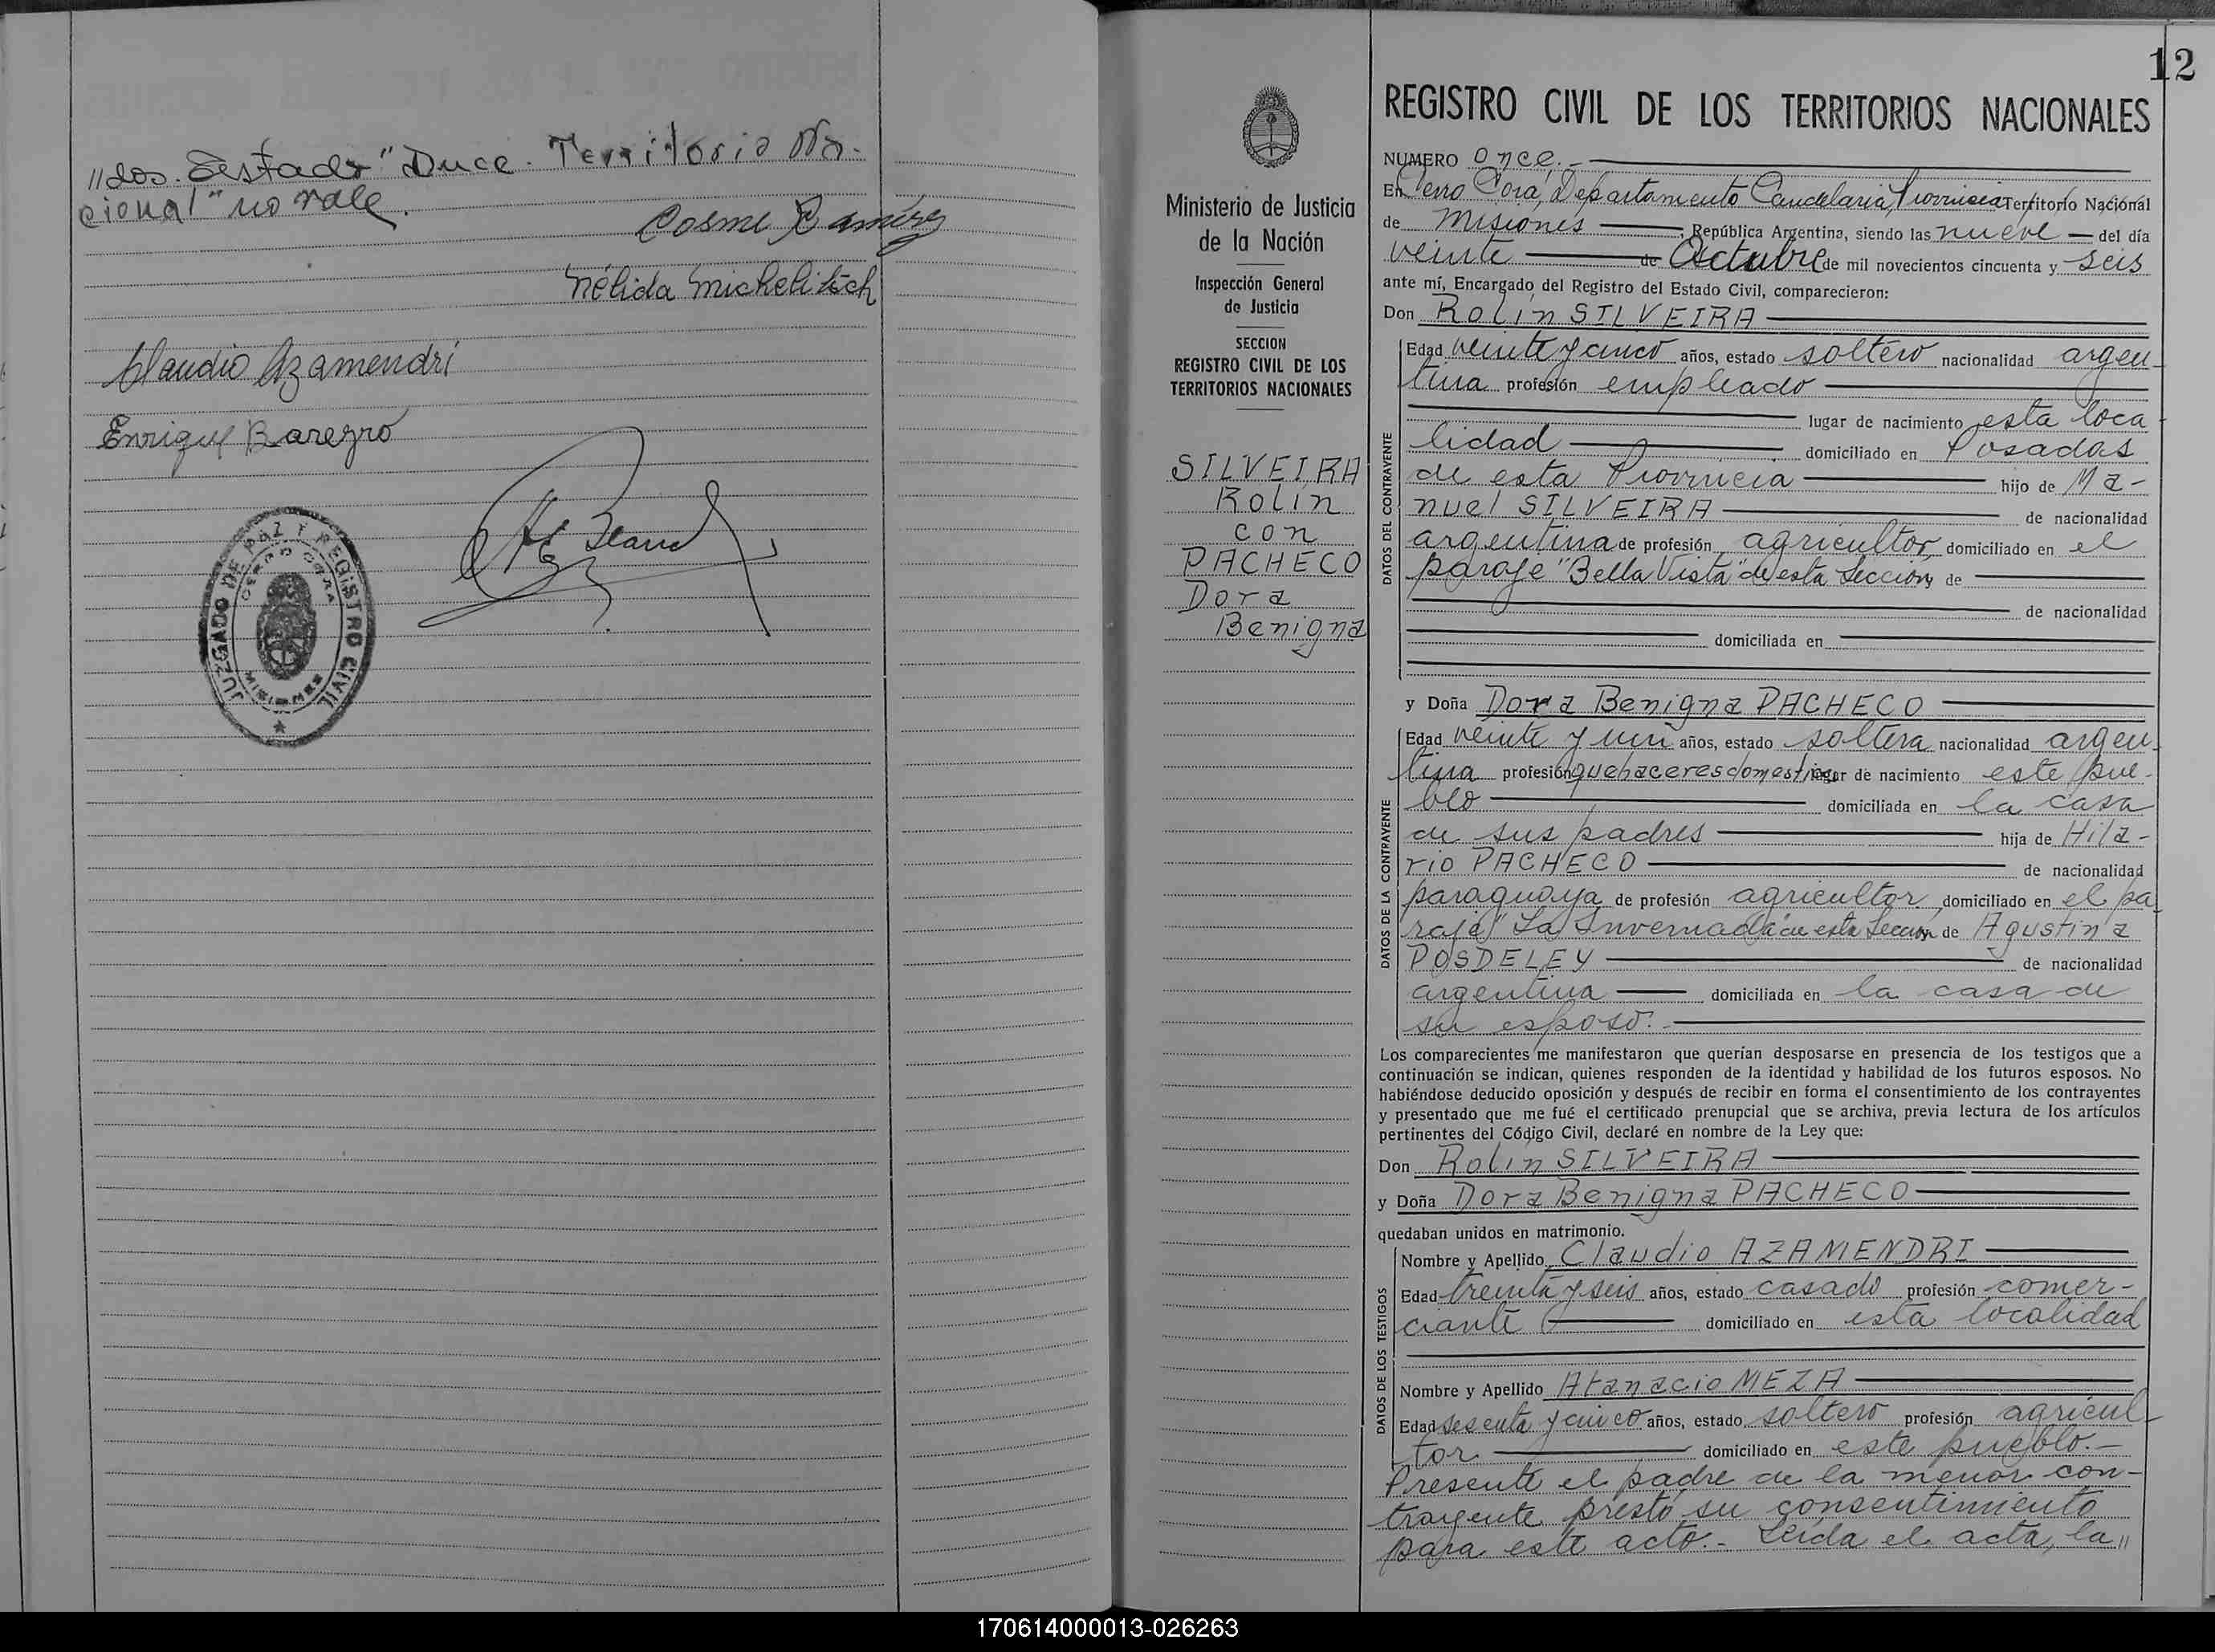 "dos. Testado "Duce. Territorio Na-
cional" no vale.
Cosme Ramírez
Nélida Michelitch
Claudio Azamendri
Enrique
JUZGADO DE PAZ Y REGISTRO CIVIL
CERRO CORA
MISIONES
12
Ministerio de Justicia
de la Nación
Inspección General
de Justicia
SECCION
REGISTRO CIVIL DE LOS
TERRITORIOS NACIONALES
SILVEIRA
Rolin
con
PACHECO
Dora
Benigna
REGISTRO CIVIL DE LOS TERRITORIOS NACIONALES
NUMERO once.-
En Cerro Cora, Departamento Candelaria, Provincia Territorio Nacional
de Misiones, República Argentina, siendo las nueve del día
veinte de Octubre de mil novecientos cincuenta y seis
ante mí, Encargado del Registro del Estado Civil, comparecieron:
Don Rolin SILVEIRA
DATOS DEL CONTRAYENTE
Edad veinte y cinco años, estado soltero nacionalidad argen-
tina profesión empleado
lugar de nacimiento esta loca-
lidad domiciliado en Posadas
de esta Provincia hijo de Ma-
nuel SILVEIRA de nacionalidad
argentina de profesión agricultor, domiciliado en el
paraje "Bella Vista" de esta Sección y de
de nacionalidad
domiciliada en
y Doña Dora Benigna PACHECO
DATOS DE LA CONTRAYENTE
Edad veinte y un años, estado soltera nacionalidad argen-
tina profesión quehaceres domesticos lugar de nacimiento este pue-
blo domiciliada en la casa
de sus padres hija de Hila-
rio PACHECO de nacionalidad
paraguaya de profesión agricultor, domiciliado en el pa-
raje "La Invernada" de esta Sección y de Agustina
POSDELEY de nacionalidad
argentina domiciliada en la casa de
su esposo.-
Los comparecientes me manifestaron que querían desposarse en presencia de los testigos que a
continuación se indican, quienes responden de la identidad y habilidad de los futuros esposos. No
habiéndose deducido oposición y después de recibir en forma el consentimiento de los contrayentes
y presentado que me fué el certificado prenupcial que se archiva, previa lectura de los artículos
pertinentes del Código Civil, declaré en nombre de la Ley que:
Don Rolin SILVEIRA
y Doña Dora Benigna PACHECO
quedaban unidos en matrimonio.
DATOS DE LOS TESTIGOS
Nombre y Apellido Claudio AZAMENDRI
Edad treinta y seis años, estado casado profesión comer-
ciante domiciliado en esta localidad
Nombre y Apellido Atanacio MEZA
Edad sesenta y cinco años, estado soltero profesión agricul-
tor domiciliado en este pueblo.-
Presente el padre de la menor con-
trayente prestó su consentimiento
para este acto.- Leída el acta, la"
170614000013-026263